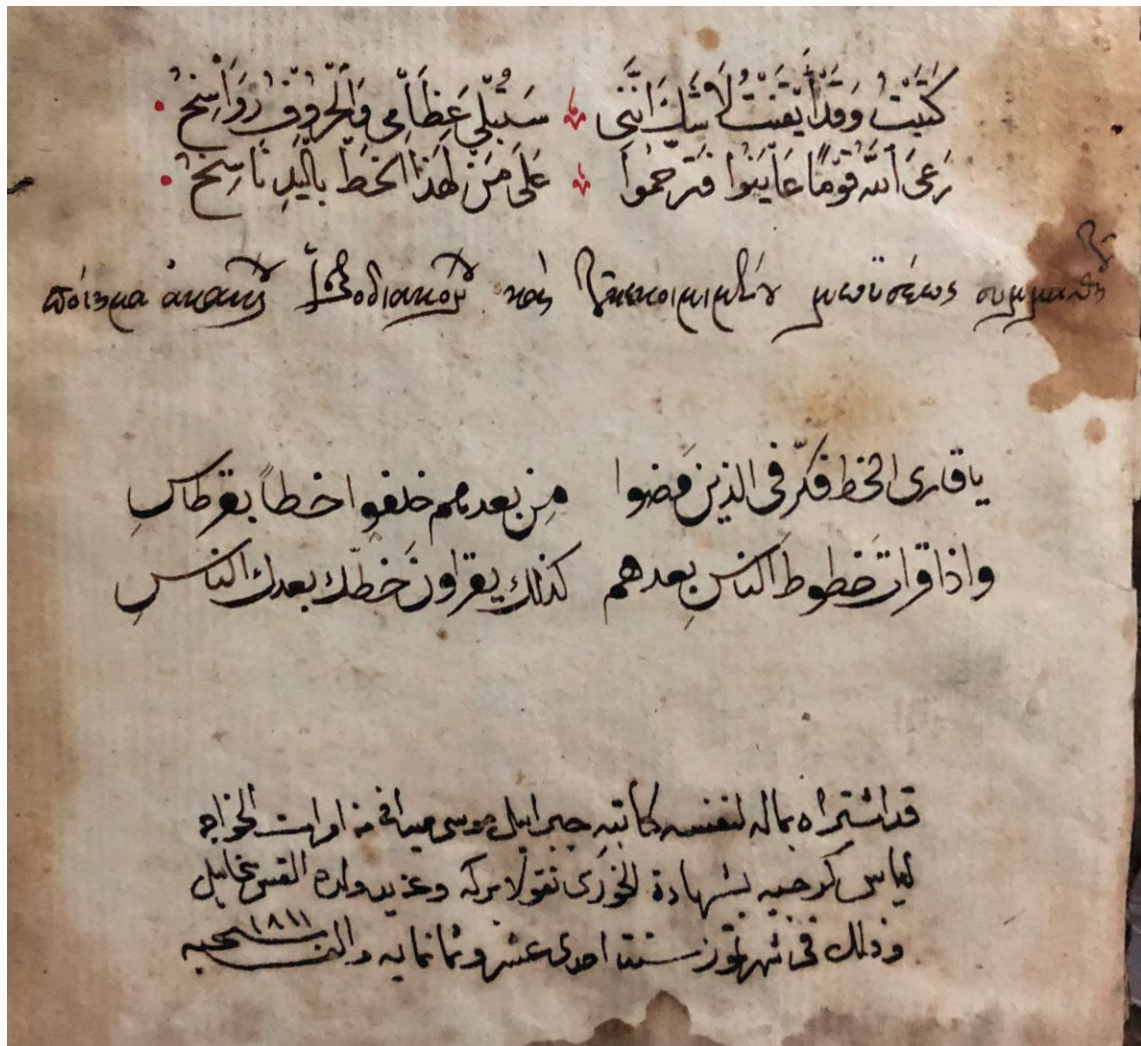 كَتَبْتُ وَقَدْ أَيْقَنْتُ لَا شَكَّ اَنَّنِى سَتُبْلَي عِظَامِى وَالْحُرُوفُ رَوَاسِخُ
رَعَى اَللّٰه قَوْمًا عَايَنُوا فتَرَحَّمُوا عَلَى مَنْ لِهَذَا الخَطِّ بِالْيَدِ نَاسِخُ
ποίημα ἀκακίου καὶ μωϋσέως
يا قارى الخط فكّر فى الذين مَضوا مِن بعدهم خلفوا خطاً بقرطاسِ
واذا قرات خطوطَ الناسِ بعدهم كذلك يقراون خطّك بعدك الناسِ
قد اشتراه بماله لنفسه كاتبه جبراييل موسى من الخواجه
الياس بشهادة الخورى نقولا بركه وولده القس مخاييل
وذلك فى شهر تموز سنة احدى عشر وثمانمايه والف مسيحيه ١٨١١